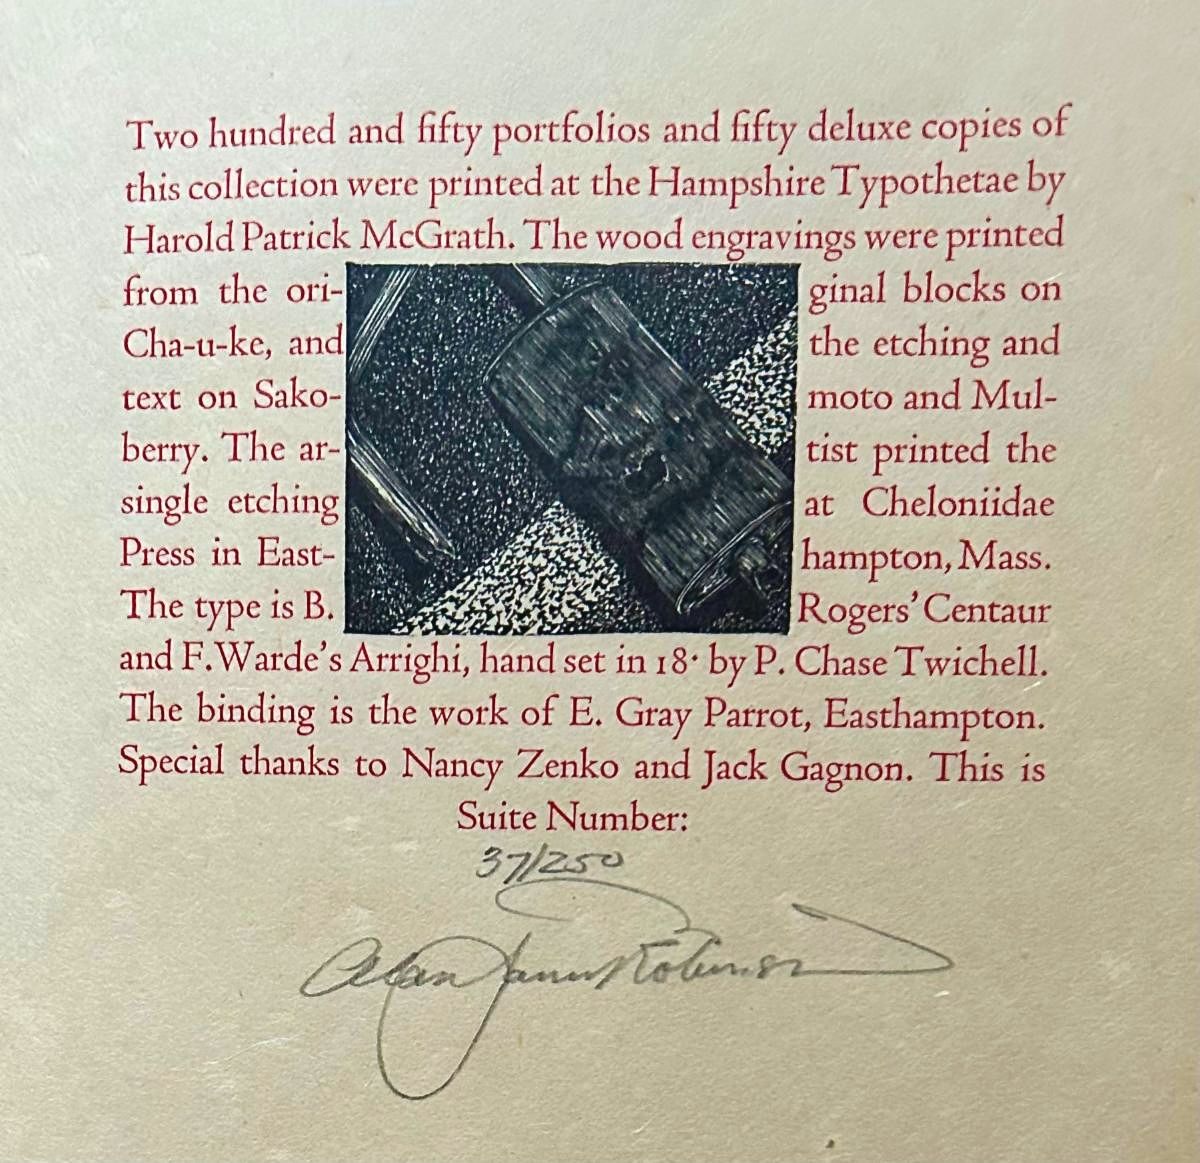 Two hundred and fifty portfolios and fifty deluxe copies of
this collection were printed at the Hampshire Typothetae by
Harold Patrick McGrath. The wood engravings were printed
from the ori- ginal blocks on
Cha-u-ke, and the etching and
text on Sako- moto and Mul-
berry. The ar- tist printed the
single etching at Cheloniidae
Press in East- hampton, Mass.
The type is B. Rogers' Centaur
and F. Warde's Arrighi, hand set in 18· by P. Chase Twichell.
The binding is the work of E. Gray Parrot, Easthampton.
Special thanks to Nancy Zenko and Jack Gagnon. This is
Suite Number:
37/250
Alan James Robinson